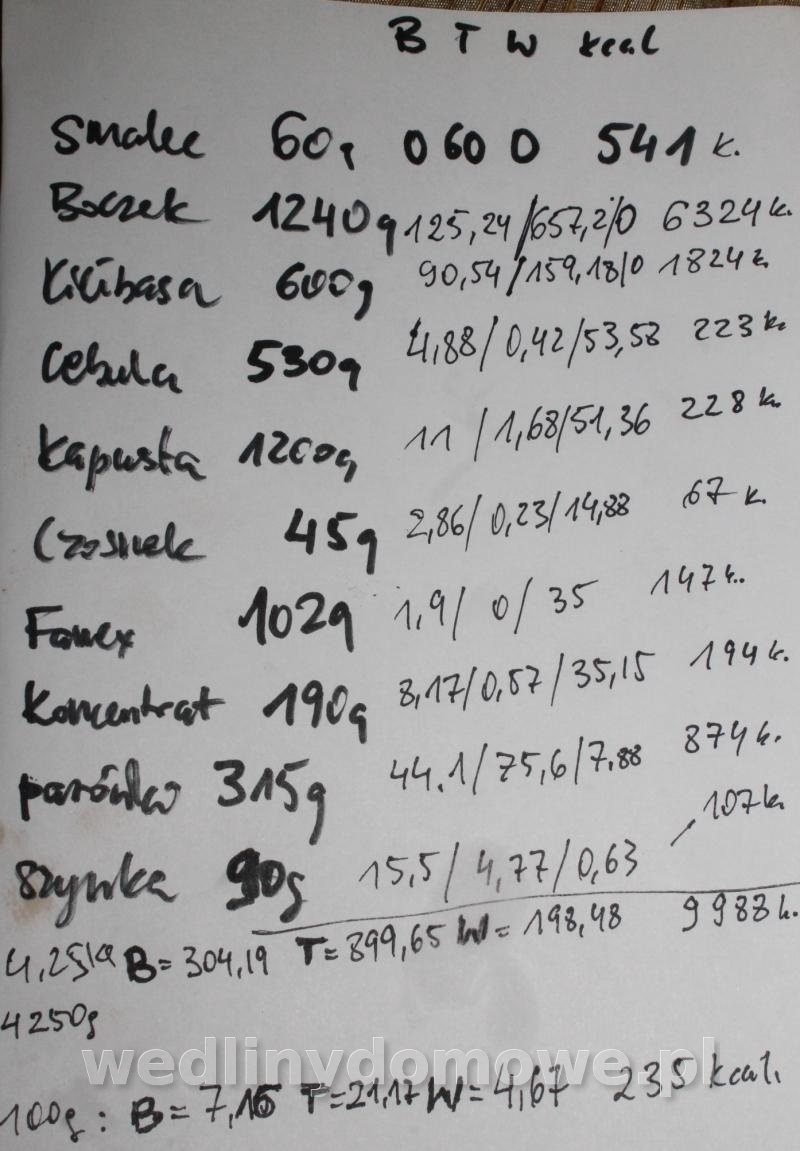 B T W kcal
Smalec 60g 0 60 0 541 k.
Boczek 1240g 125,24/657,2/0 6324 k.
Kiełbasa 600g 90,54/159,18/0 1824 k
Cebula 530g 4,88/0,42/53,53 223 k.
Kapusta 1200g 11/1,68/51,36 228 k.
Czosnek 45g 2,86/0,23/14,88 67 k.
Fawex 102g 1,9/0/35 147 k.
Koncentrat 190g 8,17/0,57/35,15 194 k.
parówki 315g 44.1/75,6/7,88 874 k.
Szynka 90g 15,5/4,77/0,63 107 k
4,25kg B= 304,19 T= 899,65 W= 198,48 9988 k.
4250g
wedlinydomowe.pl
100g: B= 7,16 T=21,17 W= 4,67 235 kcal.